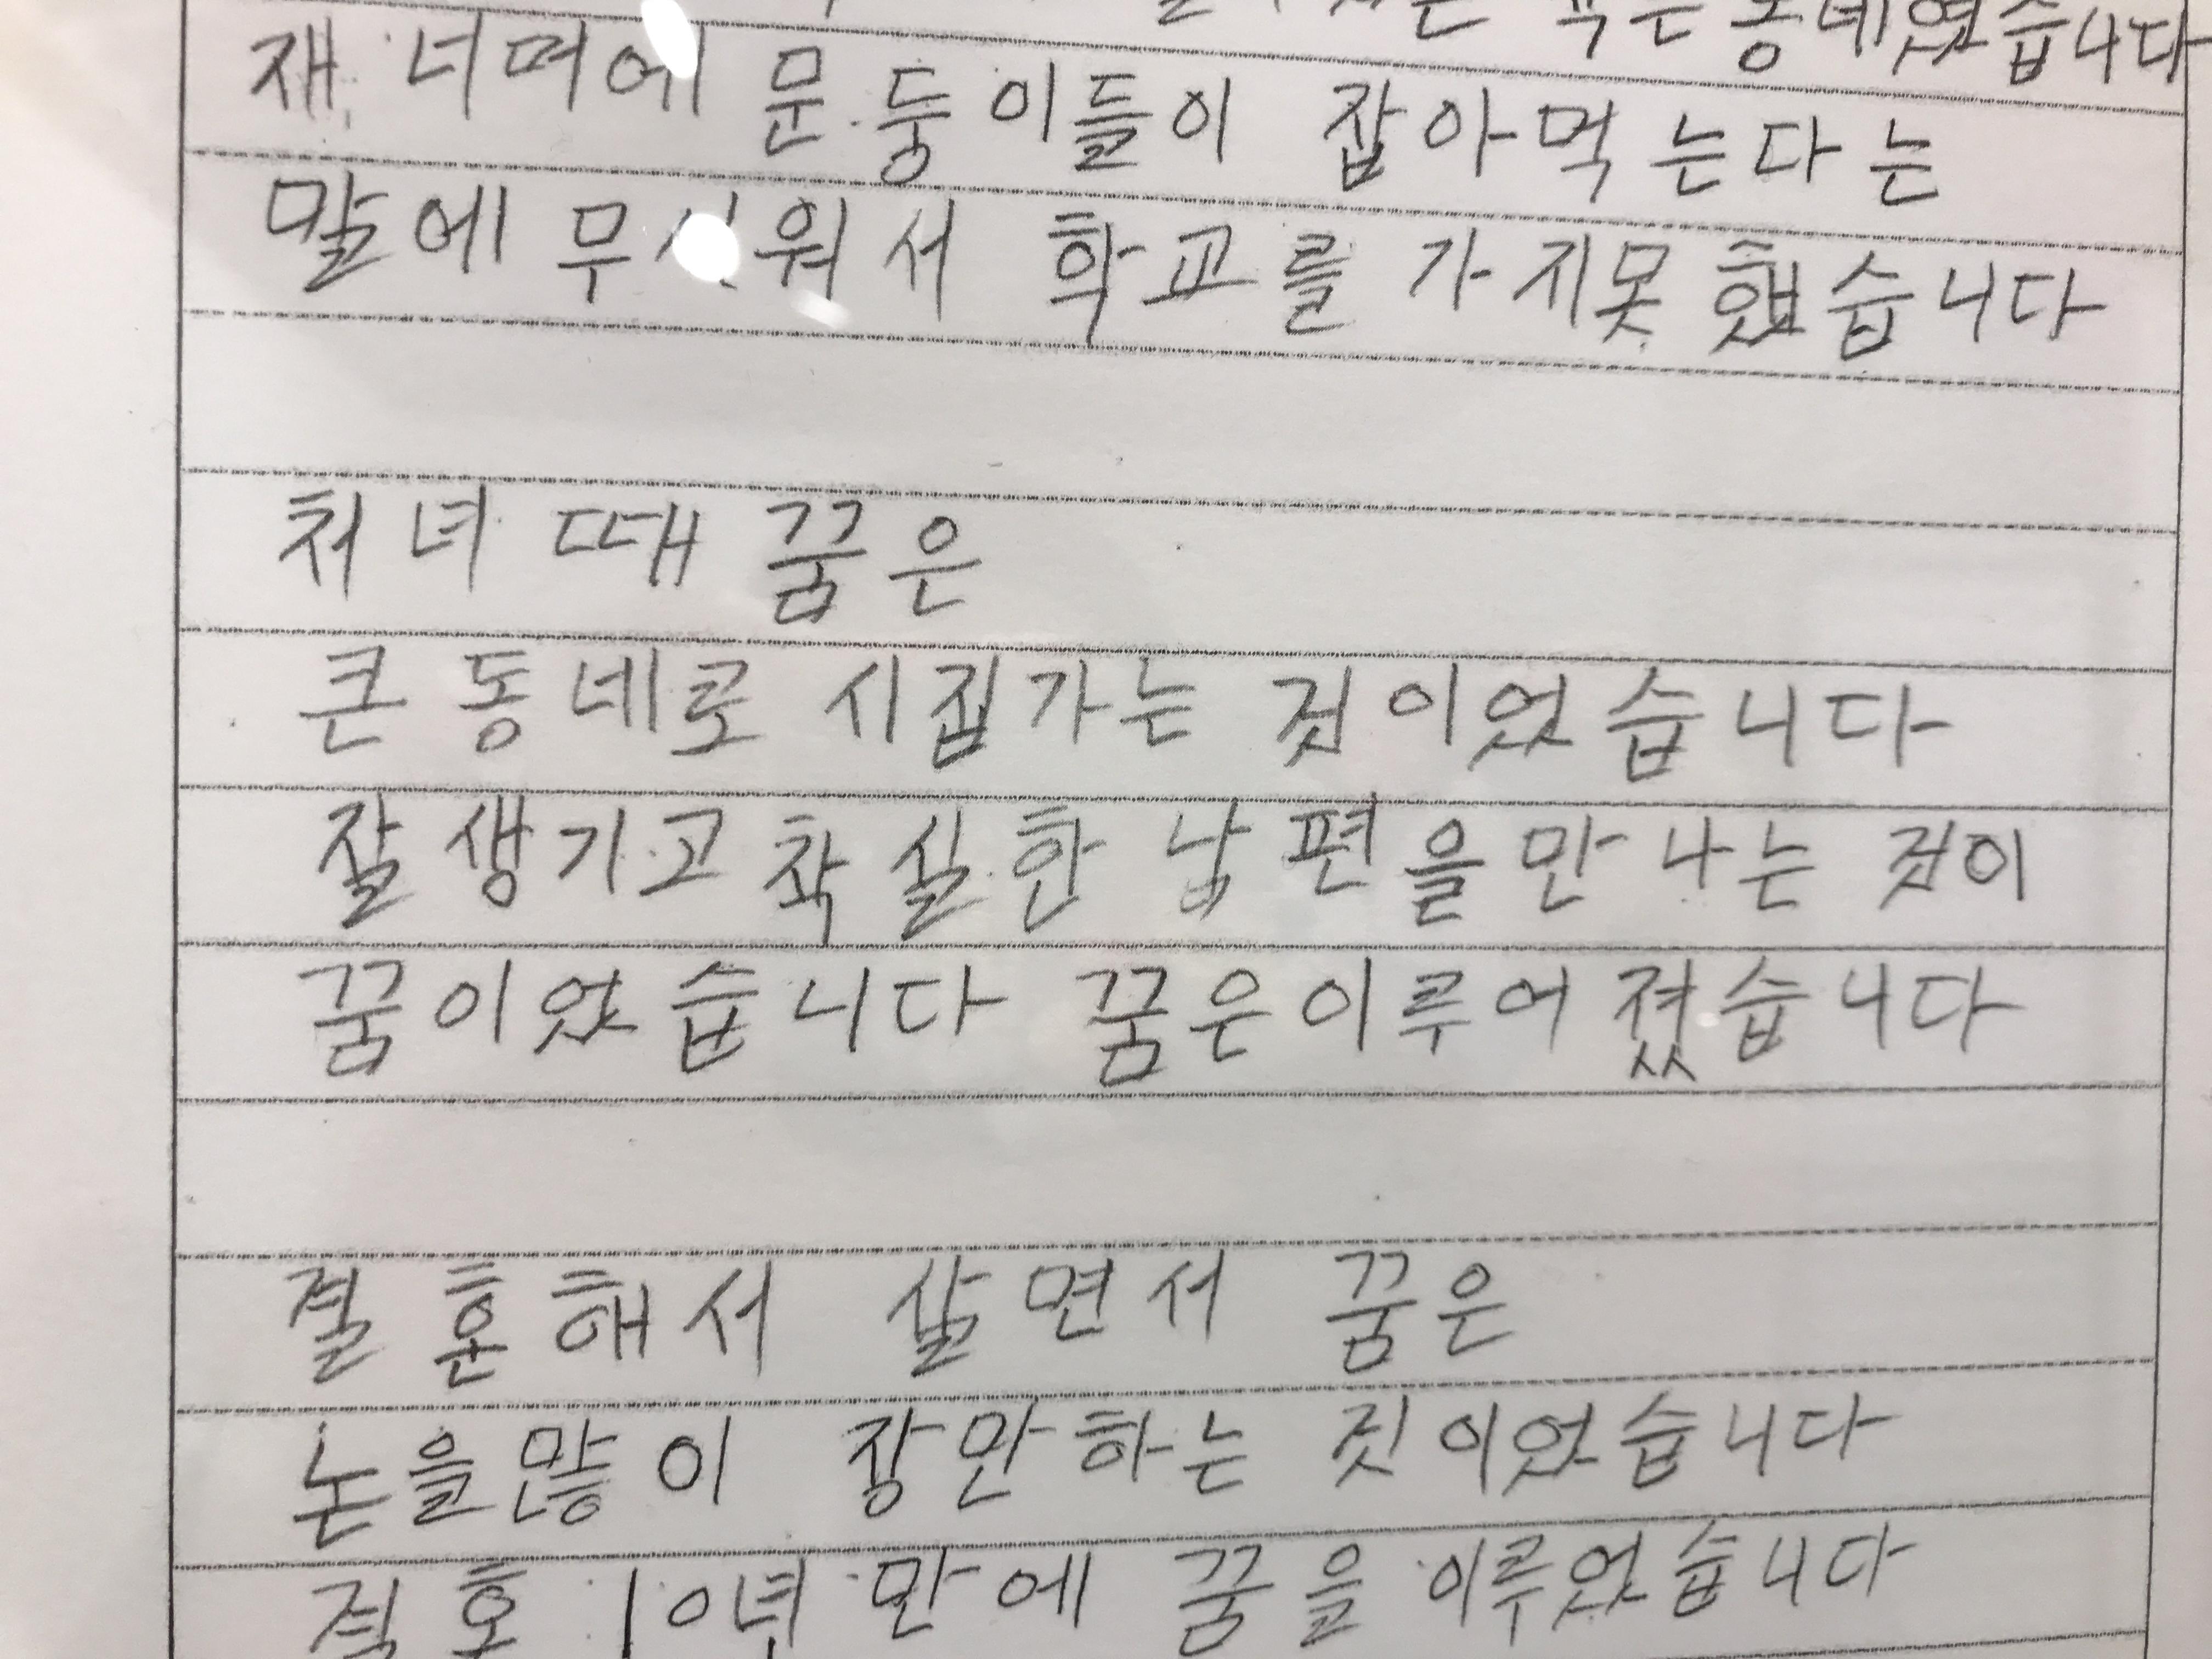 동네였습니다
재 너머에 문둥이들이 잡아먹는다는
말에 무서워서 학교를 가지못했습니다
처녀 때 꿈은
큰 동네로 시집가는 것이었습니다
잘생기고 착실한 남편을 만나는 것이
꿈이었습니다 꿈은이루어졌습니다
결혼해서 살면서 꿈은
논을많이 장만하는 것이었습니다
결혼 10년 만에 꿈을 이루었습니다